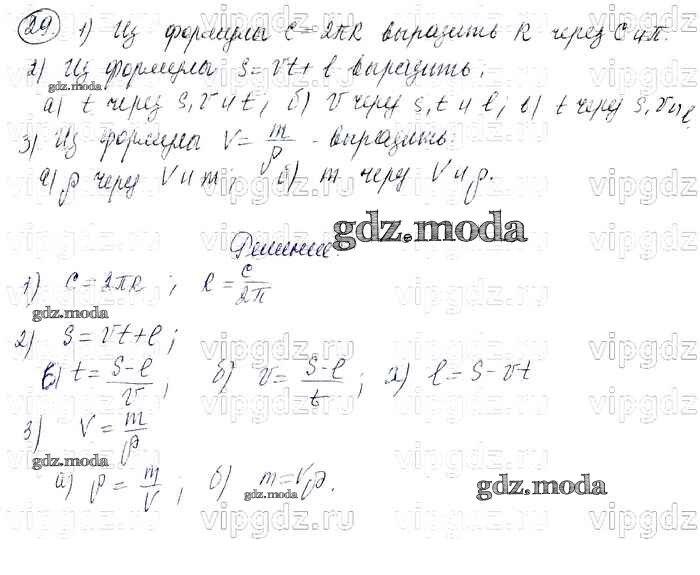 29. 1) Из формулы C = 2πR выразить R через C и π.
2) Из формулы S = vt + l выразить:
gdz.moda
а) t через S, v и t; б) v через S, t и l; в) t через S, v и l
3) Из формулы V = m/ρ - выразить:
а) ρ через V и m; б) m через V и ρ.
gdz.moda
Решение:
1) C = 2πR ; R = C/2π
gdz.moda
2) S = vt + l ;
в) t = S-l/v ; б) v = S-l/t ; а) l = S - vt
3) V = m/ρ
gdz.moda
а) ρ = m/V ; б) m = Vρ.
gdz.moda
gdz.moda
vipgdz.ru